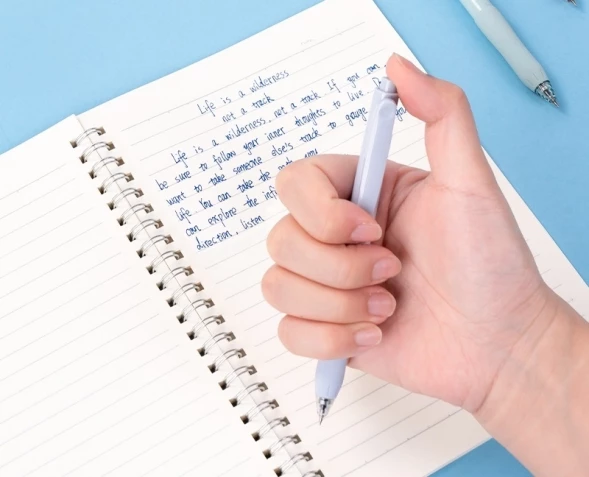 Life is a wilderness
not a track
Life is a wilderness, not a track If you can
be sure to follow your inner thoughts to live.
want to take someone else's track to gauge
life You can take the
can explore the inf
direction, listen